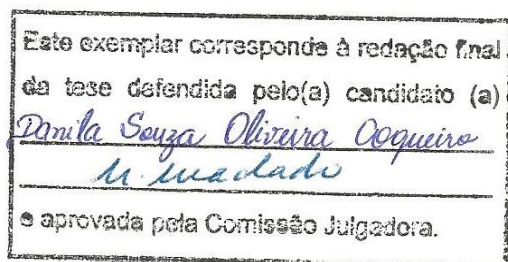 Este exemplar corresponde à redação final
da tese defendida pelo(a) candidato (a)
Danila Souza Oliveira Coqueiro
e aprovada pela Comissão Julgadora.